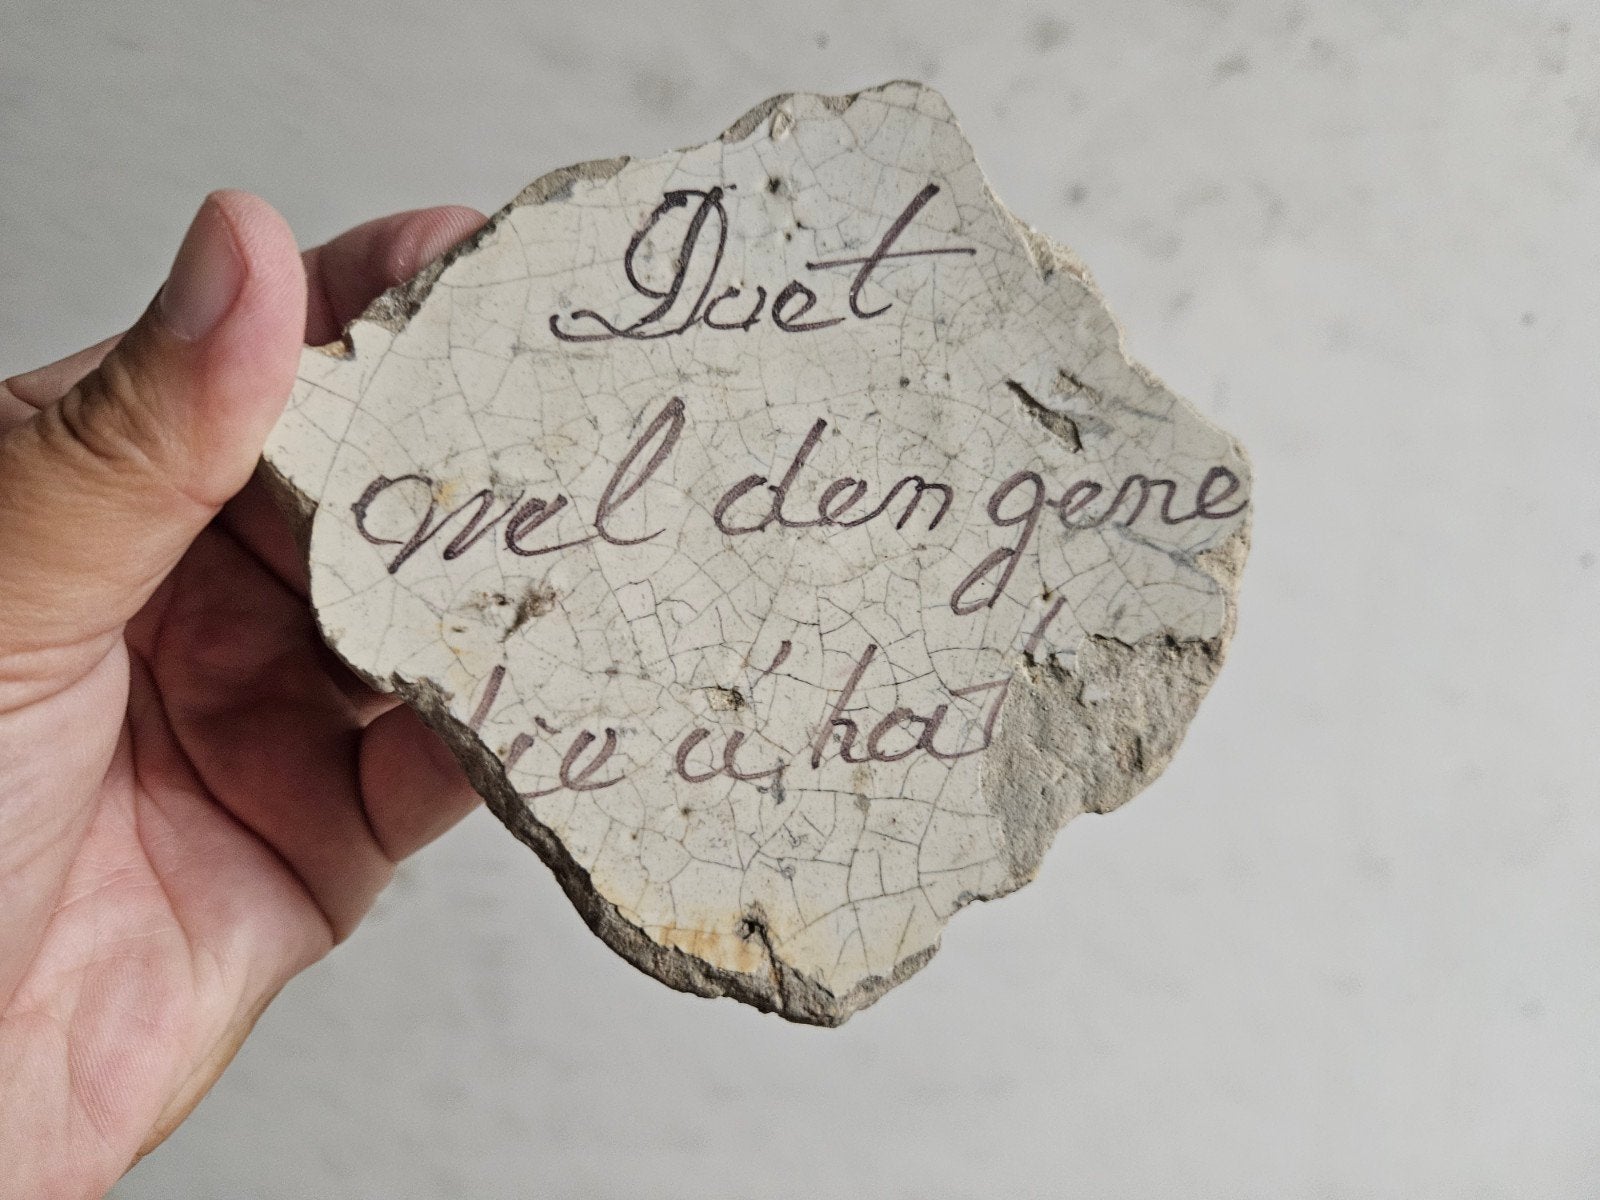 Doet
wel den gene
die u hat